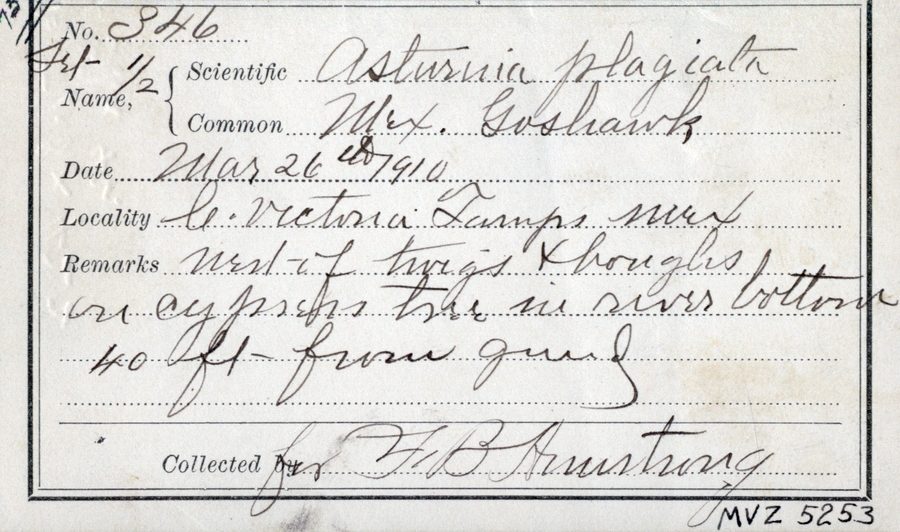 No. 346
Set 1/2
Name, Scientific Asturina plagiata
Common Mex. Goshawk
Date Mar 26th 1910
Locality C. Victoria Tamps Mex
Remarks Nest of twigs & boughs
on cypress tree in river bottom
40 ft from
Collected for F. B. Armstrong
MVZ 5253